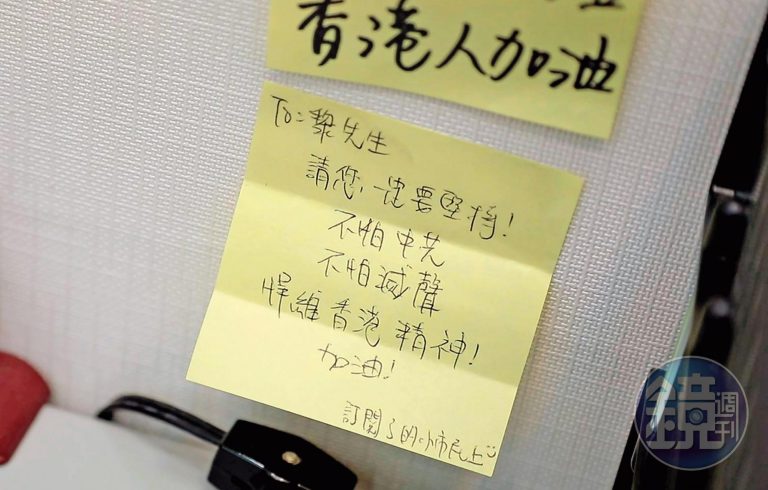 香港人加油
To: 黎先生
請您一定要堅持!
不怕中共
不怕滅聲
悍維香港精神!
加油!
訂閱了的小市民上
鏡週刊